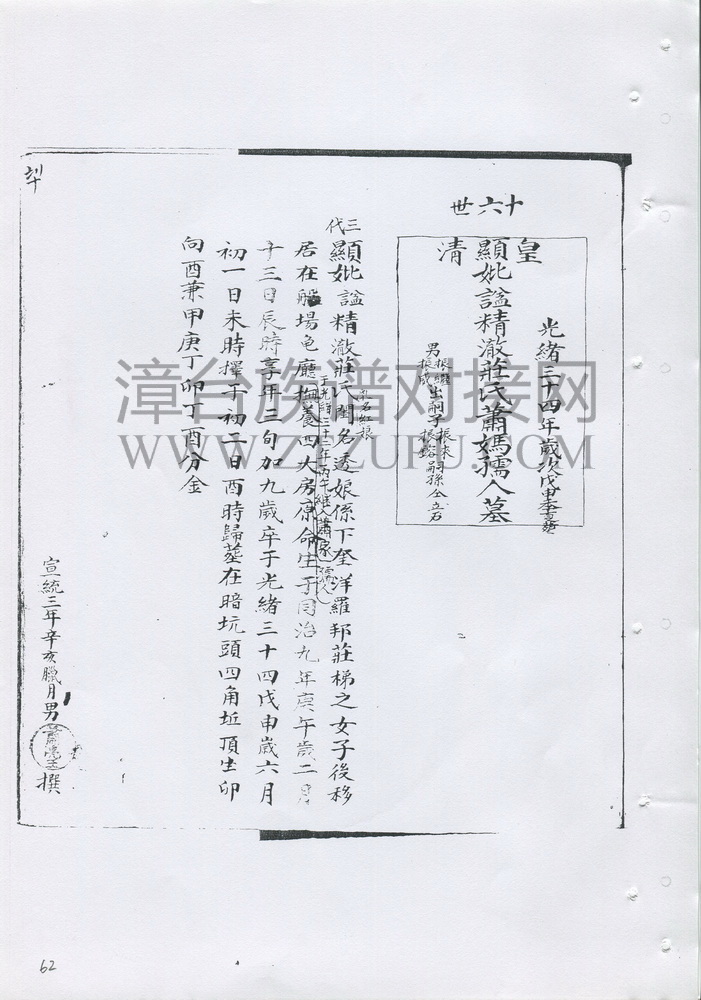 十六世
光緒三十四年歲次戊申季夏
皇清
顯妣諡精澈莊氏蕭媽孺人墓
男振成出嗣子振來羽孫仝立石
三代顯妣諡精澈莊氏閨名透娘係下奎洋羅邦莊梯之女子後移
乳名紅娘
居在船場龟廳撫養四大房原命生于同治九年庚午歲二月
于光緒三十二年丙午繼入蕭家孺人
十三日辰時享年三旬加九歲卒于光緒三十四戊申歲六月
初一日未時擇于初二日酉時歸塟在暗坑頭四角坵頂坐卯
向酉兼甲庚丁卯丁酉分金
宣統三年辛亥臘月男撰
漳台族谱对接网
WWW.ZTZUPU.COM
62